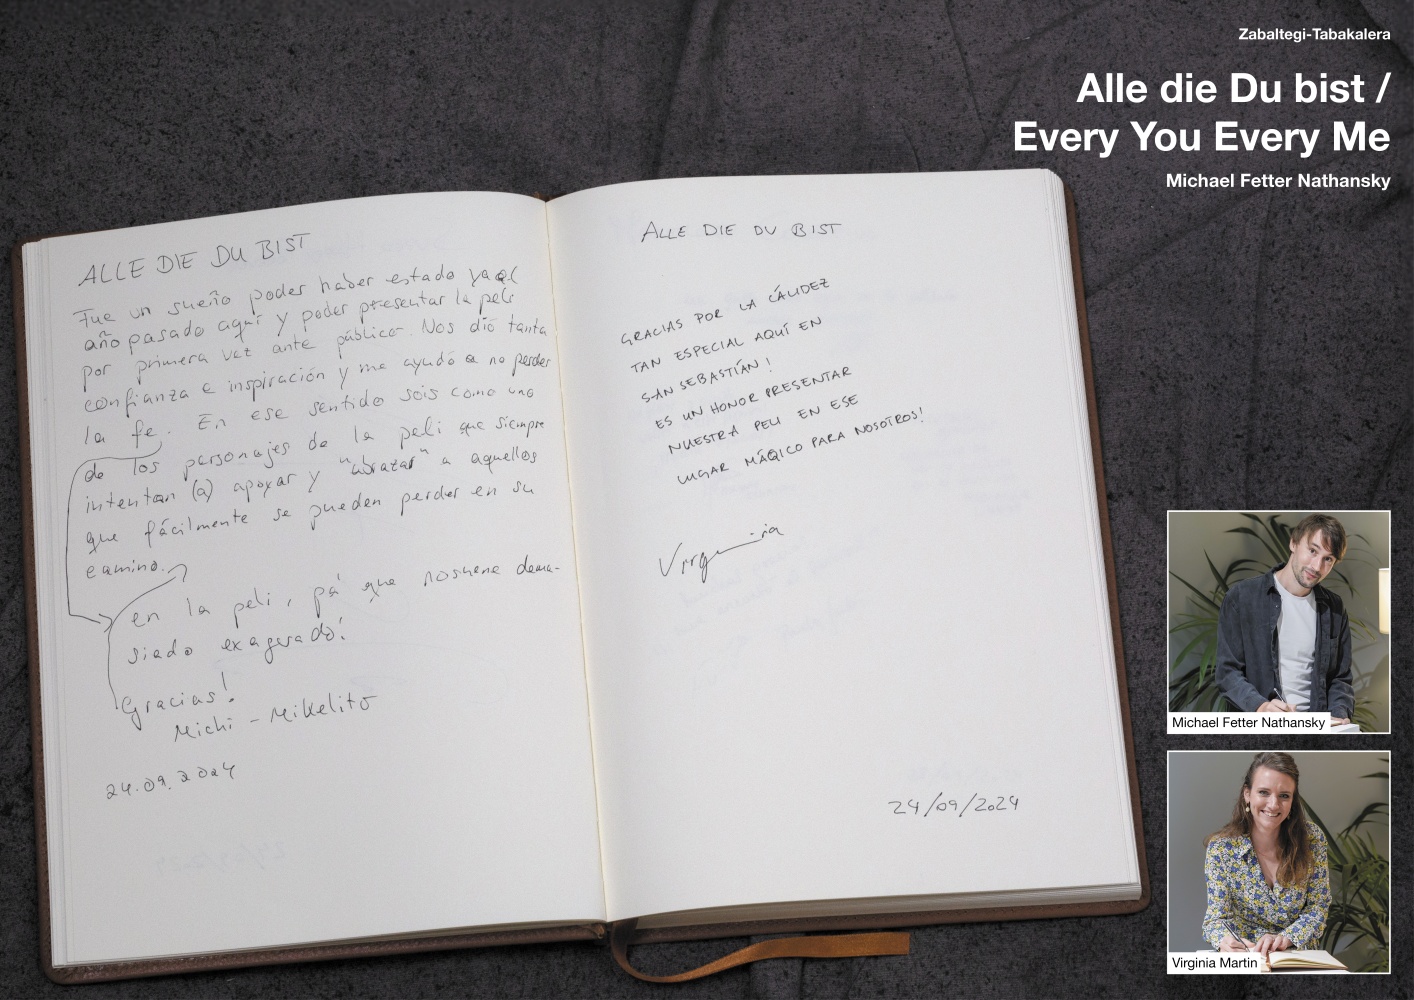 Zabaltegi-Tabakalera
Alle die Du bist /
Every You Every Me
Michael Fetter Nathansky
ALLE DIE DU BIST
Fue un sueño poder haber estado ya el
año pasado aquí y poder presentar la peli
por primera vez ante público. Nos dió tanta
confianza e inspiración y me ayudó a no perder
la fe. En ese sentido sois como uno
de los personajes de la peli que siempre
intentan (a) apoyar y "abrazar" a aquellos
que fácilmente se pueden perder en su
camino.
en la peli, pá que no suene dema-
siado exagerado!
Gracias!
Michi - Mikelito
24.09.2024
ALLE DIE DU BIST
GRACIAS POR LA CÁLIDEZ
TAN ESPECIAL AQUÍ EN
SAN SEBASTÍAN!
ES UN HONOR PRESENTAR
NUESTRA PELI EN ESE
LUGAR MÁQICO PARA NOSOTROS!
Virginia
24/09/2024
Michael Fetter Nathansky
Virginia Martin